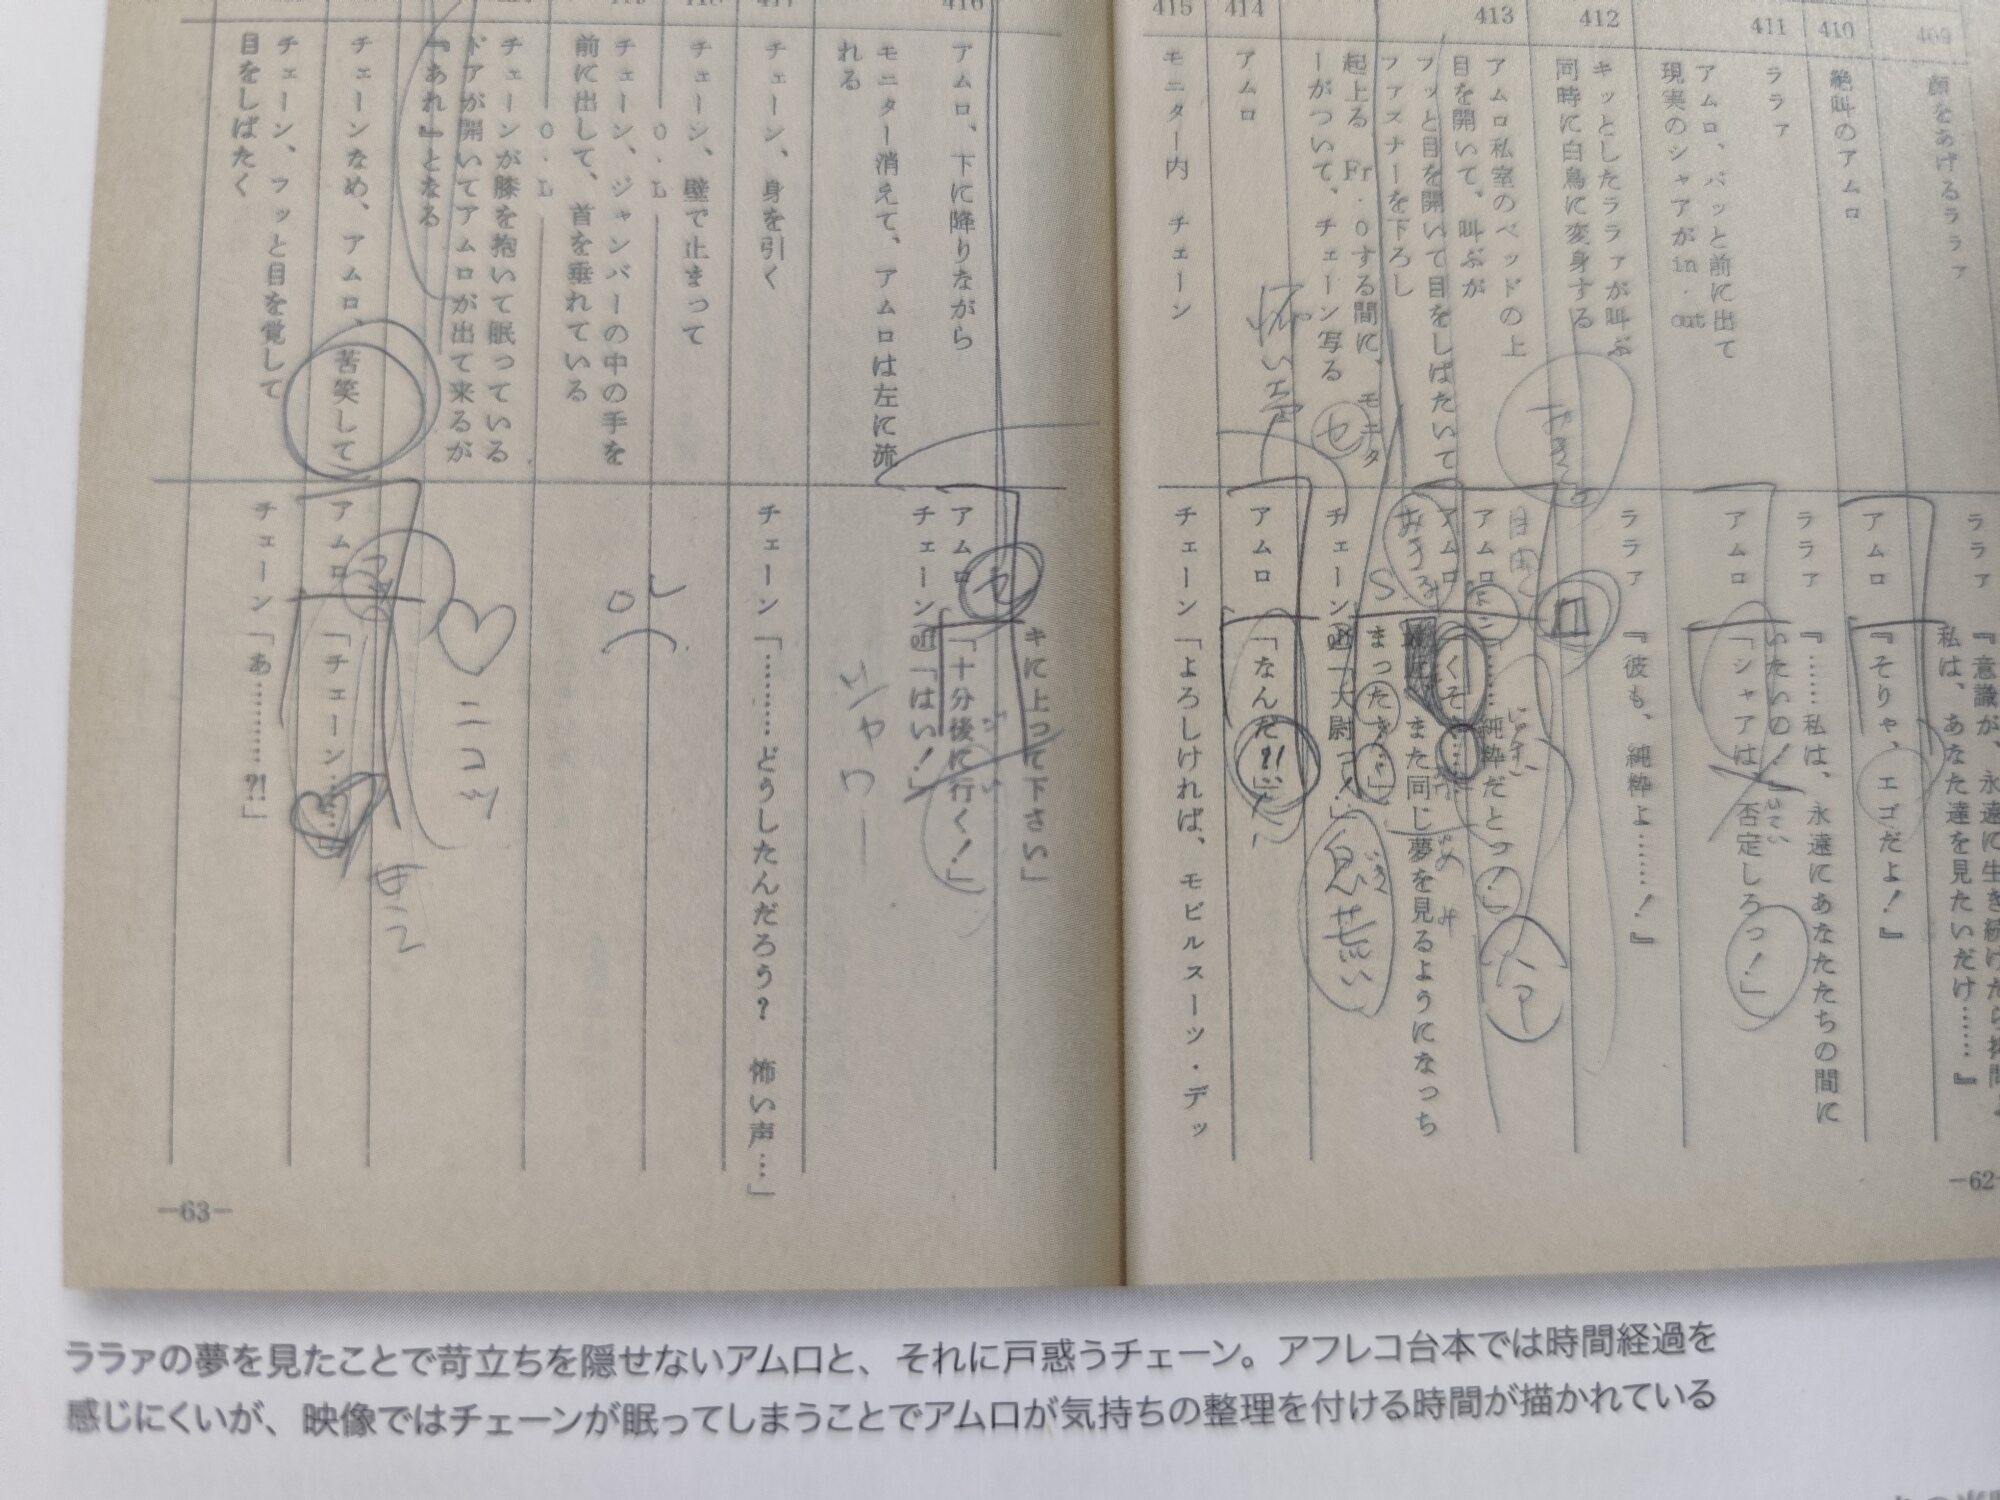 409
顔をあげるララァ
410
絶叫のアムロ
411
ララァ
アムロ、バッと前に出て
現実のシャアがin・out
412
キッとしたララァが叫ぶ
同時に白鳥に変身する
413
アムロ私室のベッドの上
目を開いて、叫ぶが
フッと目を開いて目をしばたいて
ファスナーを下ろし
起上る Fr・Oする間に、モニタ
ーがついて、チェーン写る
414
アムロ
415
モニター内 チェーン
ララァ
『意識が、永遠に生き続けたら拷問よ
私は、あなた達を見たいだけ……』
アムロ
『そりゃ、エゴだよ!』
ララァ
『……私は、永遠にあなたたちの間に
いたいの!』
アムロ
「シャアは 否定しろっ!」
ララァ
『彼も、純粋よ……!』
アムロ
「……純粋だとっ!」
アムロ
「くそぉ……
また同じ夢を見るようになっち
まった…」
チェーン
「大尉っ!」
怖い声
息荒い
アムロ
「なんだ?!」
チェーン
「よろしければ、モビルスーツ・デッ
—62—
416
アムロ、下に降りながら
モニター消えて、アムロは左に流
れる
チェーン、身を引く
チェーン、壁で止まって
O.L
チェーン、ジャンパーの中の手を
前に出して、首を垂れている
O.L
チェーンが膝を抱いて眠っている
ドアが開いてアムロが出て来るが
『あれ』となる
チェーンなめ、アムロ、苦笑して
チェーン、フッと目を覚して
目をしばたく
キに上って下さい」
アムロ
「十分後に行く!」
チェーンoff「はい!」
シャワー
チェーン「………どうしたんだろう? 怖い声…」
ニコッ
アムロ
「チェーン……」
チェーン「あ………?!」
—63—
ララァの夢を見たことで苛立ちを隠せないアムロと、それに戸惑うチェーン。アフレコ台本では時間経過を
感じにくいが、映像ではチェーンが眠ってしまうことでアムロが気持ちの整理を付ける時間が描かれている